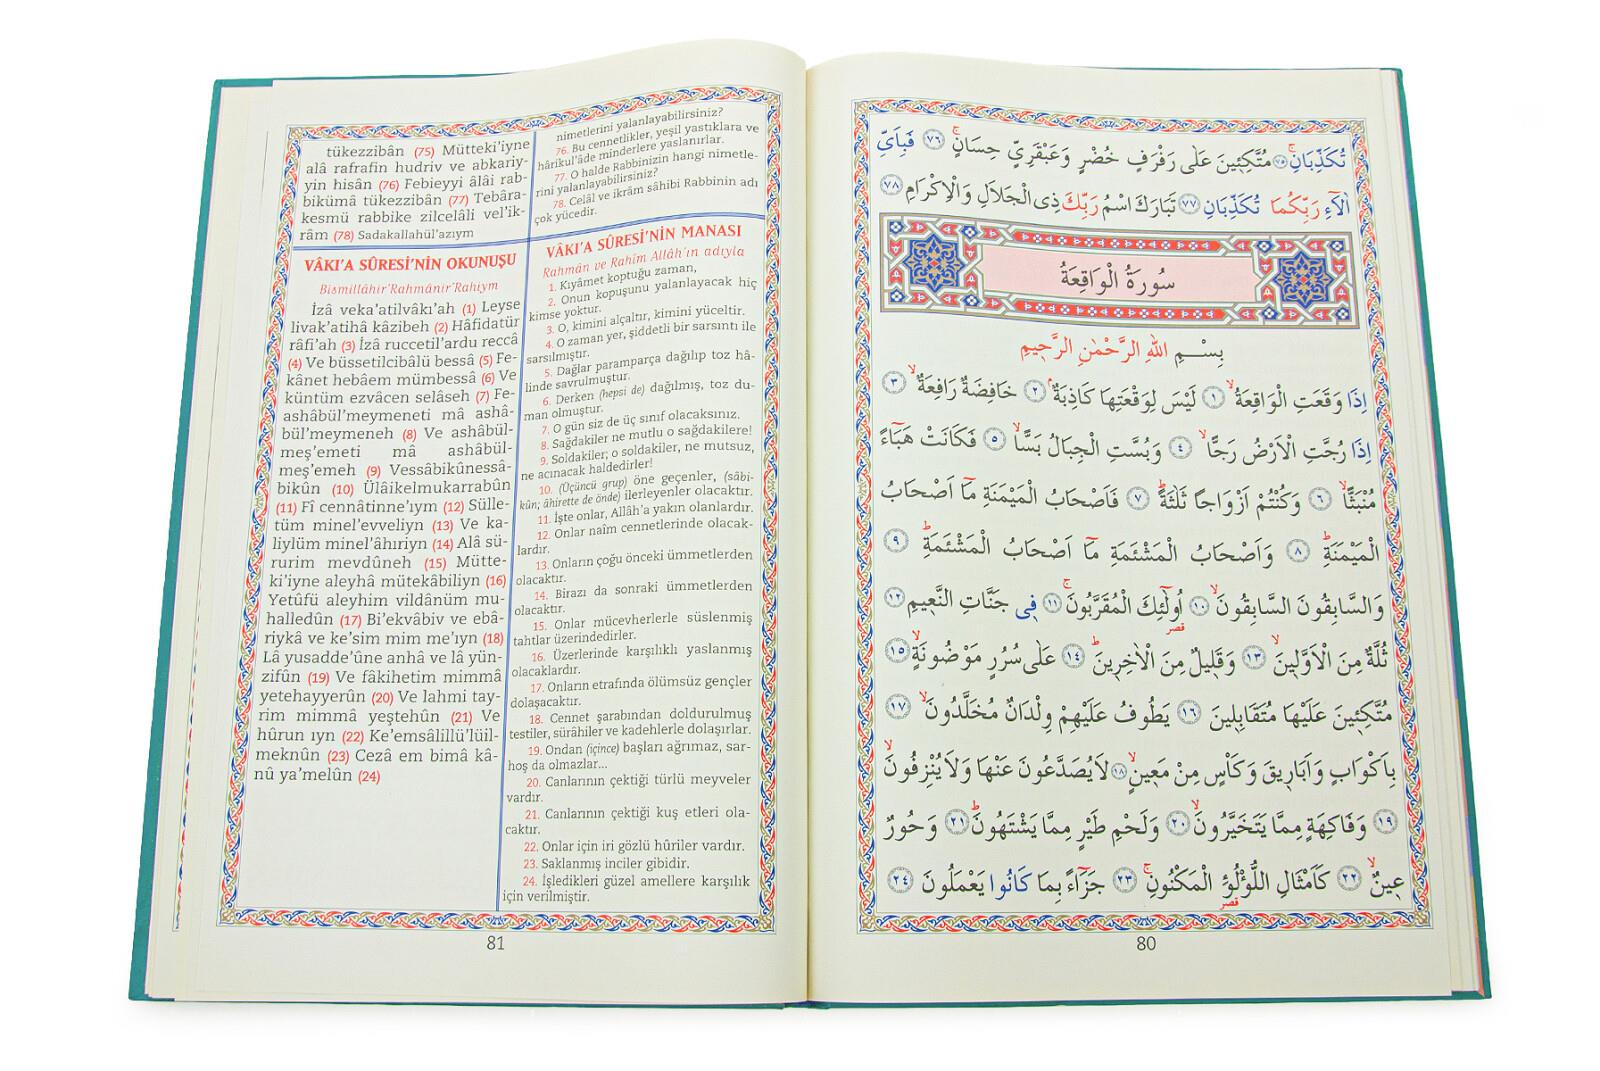 تُكَذِّبَانِ ﴿٧٥﴾ مُتَّكِـِٔينَ عَلٰى رَفْرَفٍ خُضْرٍ وَعَبْقَرِيٍّ حِسَانٍۚ ﴿٧٦﴾ فَبِاَيِّ
اٰلَٓاءِ رَبِّكُمَا تُكَذِّبَانِ ﴿٧٧﴾ تَبَارَكَ اسْمُ رَبِّكَ ذِى الْجَلَالِ وَالْاِكْرَامِ ﴿٧٨﴾
سُورَةُ الْوَاقِعَةُ
بِسْـــمِ اللهِ الرَّحْمٰنِ الرَّحٖيمِ
اِذَا وَقَعَتِ الْوَاقِعَةُۙ ﴿١﴾ لَيْسَ لِوَقْعَتِهَا كَاذِبَةٌۘ ﴿٢﴾ خَافِضَةٌ رَافِعَةٌۙ ﴿٣﴾
اِذَا رُجَّتِ الْاَرْضُ رَجًّاۙ ﴿٤﴾ وَبُسَّتِ الْجِبَالُ بَسًّاۙ ﴿٥﴾ فَكَانَتْ هَبَٓاءً
مُنْبَثًّاۙ ﴿٦﴾ وَكُنْتُمْ اَزْوَاجًا ثَلٰثَةًؕ ﴿٧﴾ فَاَصْحَابُ الْمَيْمَنَةِ مَٓا اَصْحَابُ
الْمَيْمَنَةِؕ ﴿٨﴾ وَاَصْحَابُ الْمَشْـَٔمَةِ مَٓا اَصْحَابُ الْمَشْـَٔمَةِؕ ﴿٩﴾
وَالسَّابِقُونَ السَّابِقُونَۙ ﴿١٠﴾ اُولٰٓئِكَ الْمُقَرَّبُونَۚ ﴿١١﴾ فٖى جَنَّاتِ النَّعٖيمِ ﴿١٢﴾
قصر
ثُلَّةٌ مِنَ الْاَوَّلٖينَۙ ﴿١٣﴾ وَقَلٖيلٌ مِنَ الْاٰخِرٖينَؕ ﴿١٤﴾ عَلٰى سُرُرٍ مَوْضُونَةٍۙ ﴿١٥﴾
مُتَّكِـٖٔينَ عَلَيْهَا مُتَقَابِلٖينَ ﴿١٦﴾ يَطُوفُ عَلَيْهِمْ وِلْدَانٌ مُخَلَّدُونَۙ ﴿١٧﴾
بِاَكْوَابٍ وَاَبَارٖيقَ وَكَاْسٍ مِنْ مَعٖينٍۙ ﴿١٨﴾ لَا يُصَدَّعُونَ عَنْهَا وَلَا يُنْزِفُونَۙ
﴿١٩﴾ وَفَاكِهَةٍ مِمَّا يَتَخَيَّرُونَۙ ﴿٢٠﴾ وَلَحْمِ طَيْرٍ مِمَّا يَشْتَهُونَؕ ﴿٢١﴾ وَحُورٌ
عٖينٌۙ ﴿٢٢﴾ كَاَمْثَالِ اللُّؤْلُؤِ الْمَكْنُونِۚ ﴿٢٣﴾ جَزَٓاءً بِمَا كَانُوا يَعْمَلُونَ ﴿٢٤﴾
قصر
80
tükezzibân (75) Mütteki'iyne
alâ rafrafin hudriv ve abkariy-
yin hisân (76) Febieyyi âlâi rab-
bikümâ tükezzibân (77) Tebâra-
kesmü rabbike zilcelâli vel'ik-
râm (78) Sadakallahül'azıym
VÂKI'A SÛRESİ'NİN OKUNUŞU
Bismillâhir'Rahmânir'Rahiym
İzâ veka'atilvâkı'ah (1) Leyse
livak'atihâ kâzibeh (2) Hâfidatür
râfi'ah (3) İzâ ruccetil'ardu reccâ
(4) Ve büssetilcibâlü bessâ (5) Fe-
kânet hebâem mümbessâ (6) Ve
küntüm ezvâcen selâseh (7) Fe-
ashâbül'meymeneti mâ ashâ-
bül'meymeneh (8) Ve ashâbül-
meş'emeti mâ ashâbül-
meş'emeh (9) Vessâbikûnessâ-
bikûn (10) Ülâikelmukarrabûn
(11) Fî cennâtinne'ıym (12) Sülle-
tüm minel'evveliyn (13) Ve ka-
liylüm minel'âhıriyn (14) Alâ sü-
rurim mevdûneh (15) Mütte-
ki'iyne aleyhâ mütekâbiliyn (16)
Yetûfü aleyhim vildânüm mu-
halledûn (17) Bi'ekvâbiv ve ebâ-
riykâ ve ke'sim mim me'ıyn (18)
Lâ yusadde'ûne anhâ ve lâ yün-
zifûn (19) Ve fâkihetim mimmâ
yetehayyerûn (20) Ve lahmi tay-
rim mimmâ yeştehûn (21) Ve
hûrun ıyn (22) Ke'emsâlillü'lüil-
meknûn (23) Cezâ em bimâ kâ-
nû ya'melûn (24)
nimetlerini yalanlayabilirsiniz?
76. Bu cennetlikler, yeşil yastıklara ve
hârikul'âde minderlere yaslanırlar.
77. O halde Rabbinizin hangi nimetle-
rini yalanlayabilirsiniz?
78. Celâl ve ikrâm sâhibi Rabbinin adı
çok yücedir.
VÂKI'A SÛRESİ'NİN MANASI
Rahmân ve Rahîm Allâh'ın adıyla
1. Kıyâmet koptuğu zaman,
2. Onun kopuşunu yalanlayacak hiç
kimse yoktur.
3. O, kimini alçaltır, kimini yüceltir.
4. O zaman yer, şiddetli bir sarsıntı ile
sarsılmıştır.
5. Dağlar paramparça dağılıp toz hâ-
linde savrulmuştur.
6. Derken (hepsi de) dağılmış, toz du-
man olmuştur.
7. O gün siz de üç sınıf olacaksınız.
8. Sağdakiler ne mutlu o sağdakilere!
9. Soldakiler; o soldakiler, ne mutsuz,
ne acınacak haldedirler!
10. (Üçüncü grup) öne geçenler, (sâbi-
kûn; âhirette de önde) ilerleyenler olacaktır.
11. İşte onlar, Allâh'a yakın olanlardır.
12. Onlar naîm cennetlerinde olacak-
lardır.
13. Onların çoğu önceki ümmetlerden
olacaktır.
14. Birazı da sonraki ümmetlerden
olacaktır.
15. Onlar mücevherlerle süslenmiş
tahtlar üzerindedirler.
16. Üzerlerinde karşılıklı yaslanmış
olacaklardır.
17. Onların etrafında ölümsüz gençler
dolaşacaktır.
18. Cennet şarabından doldurulmuş
testiler, sürâhiler ve kadehlerle dolaşırlar.
19. Ondan (içince) başları ağrımaz, sar-
hoş da olmazlar...
20. Canlarının çektiği türlü meyveler
vardır.
21. Canlarının çektiği kuş etleri ola-
caktır.
22. Onlar için iri gözlü hûriler vardır.
23. Saklanmış inciler gibidir.
24. İşledikleri güzel amellere karşılık
için verilmiştir.
81